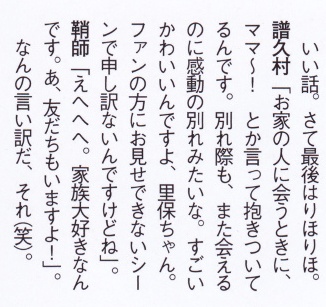 いい話。さて最後はりほりほ。
譜久村「お家の人に会うときに、
ママ〜！　とか言って抱きついて
るんです。別れ際も、また会える
のに感動の別れみたいな。すごい
かわいいんですよ、里保ちゃん。
ファンの方にお見せできないシー
ンで申し訳ないんですけどね」。
鞘師「えへへへ。家族大好きなん
です。あ、友だちもいますよ！」。
なんの言い訳だ、それ（笑）。